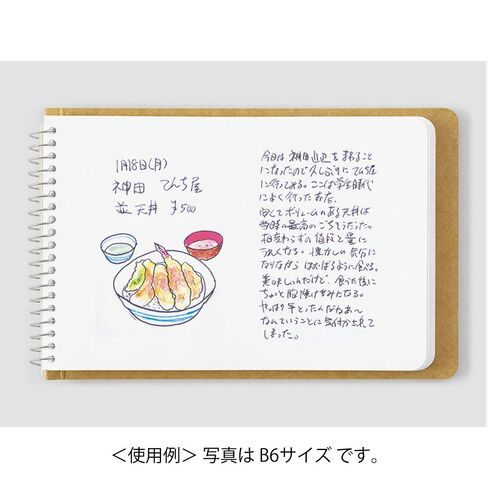 1月18日(月)
神田 てんち屋
並 天丼 ¥500
今日は 神田辺辺を まわること
になったので久しぶりに てんち屋
に行ってみる。ここは学生時代
によく行ったお店。
安くてボリュームのある天丼は
当時の最高のごちそうだった。
相変わらずの値段と量に
うれしくなる。懐かしい気分に
なりながら ほおばるように食べる。
美味しいんだけど、食べた後に
ちょっと胸焼けぎみになる。
やっぱり年とったんだなあ〜
なんていうことに気付かされて
しまった。
＜使用例＞ 写真は B6サイズ です。